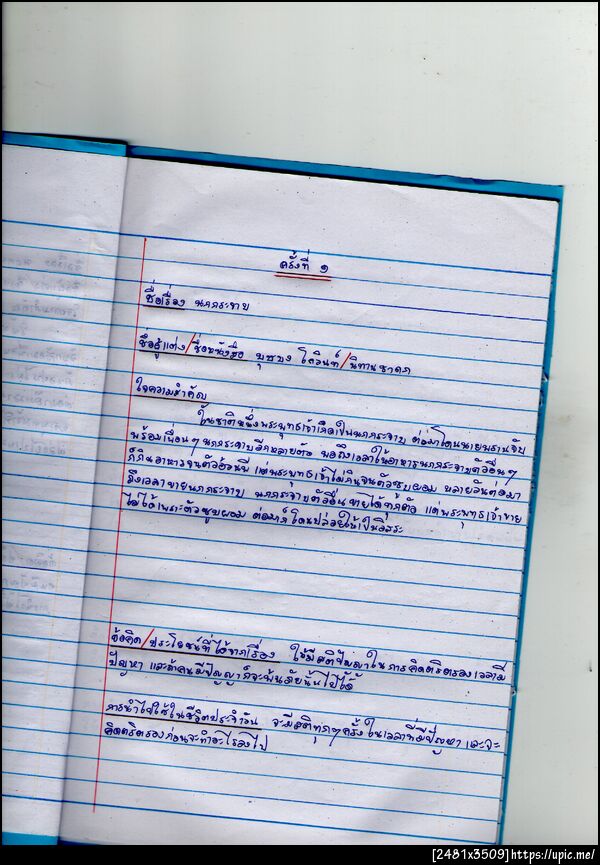 ครั้งที่ ๑
ชื่อเรื่อง นกกระจาบ
ชื่อผู้แต่ง/ชื่อหนังสือ บุษบง โควินท์/นิทานชาดก
ใจความสำคัญ
ในชาติหนึ่งพระพุทธเจ้าเกิดเป็นนกกระจาบ ต่อมาโดนนายพรานจับ
พร้อมเพื่อนๆ นกกระจาบอีกหลายตัว พอถึงเวลาให้อาหารนกกระจาบตัวอื่นๆ
ก็กินอาหารจนตัวอ้วนพี แต่พระพุทธเจ้าไม่กินจนตัวซูบผอม หลายวันต่อมา
ถึงเวลาขายนกกระจาบ นกกระจาบตัวอื่นขายได้ทุกตัว แต่พระพุทธเจ้าขาย
ไม่ได้เพราะตัวซูบผอม ต่อมาก็โดนปล่อยให้เป็นอิสระ
ข้อคิด/ประโยชน์ที่ได้จากเรื่อง ใช้มีสติปัญญาในการคิดตริตรองเวลามี
ปัญหา และถ้าคนมีปัญญาก็จะพ้นภัยนั้นไปได้
การนำไปใช้ในชีวิตประจำวัน จะมีสติทุกๆครั้งในเวลาที่มีปัญหา และจะ
คิดตริตรองก่อนจะทำอะไรลงไป
[2481x3509]https://upic.me/